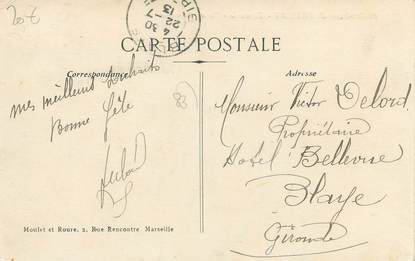 20€
4 30
22-7
13
CARTE POSTALE
Correspondance
Adresse
mes meilleurs souhaits
Bonne fête
83
Monsieur Victor Delord
Propriétaire
Hotel Bellevue
Blaye
Gironde
Moulet et Roure, 2, Rue Rencontre Marseille